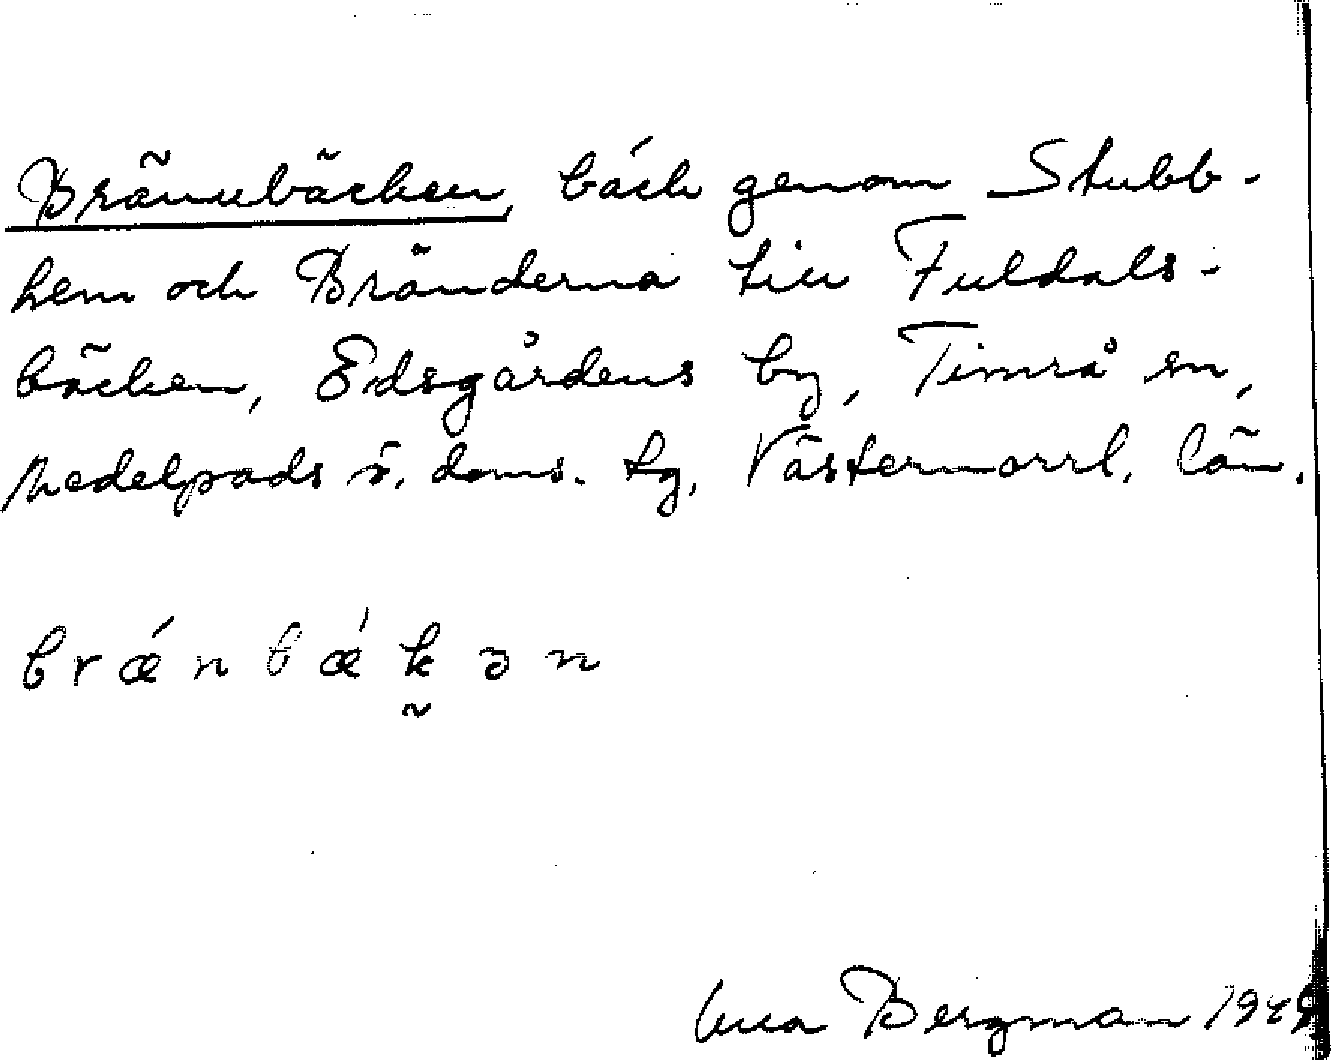 Brännbäcken, bäck genom Stubb-
hem och Bränderna till Fuldals-
bäcken, Edsgårdens by, Timrå sn,
Medelpads ö. doms. tg, Västernorrl. län.
brǽnbǽk̰ən
Bergman